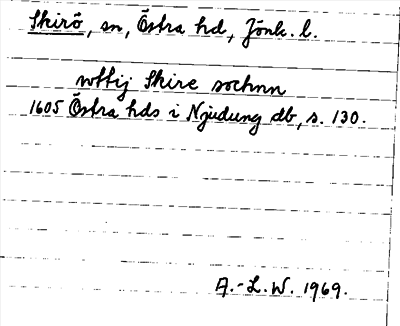 Skirö, sn, Östra hd, Jönk. l.
wttij Skire sochnn
1605 Östra hds i Njudung db, s. 130.
A.-L.W. 1969.